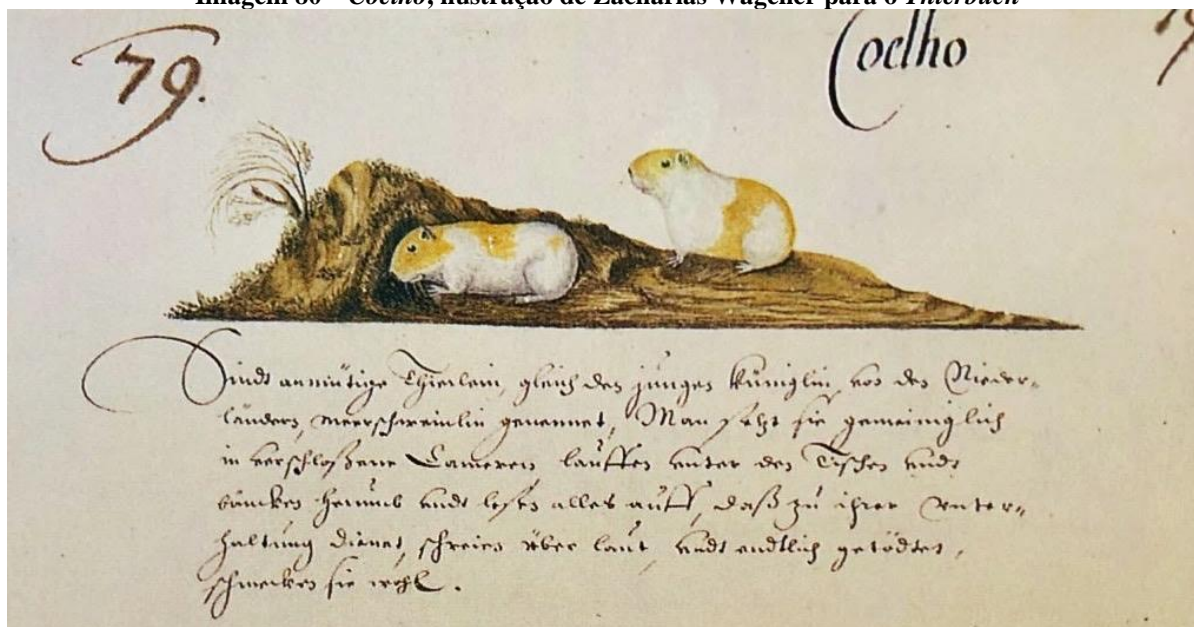 Imagem 80 – Coelho, ilustração de Zacharias Wagener para o Thierbuch
79.
Coelho
Sindt anmütige Thierlein, gleich den jungen Küniglin, von den Nieder-
ländern, meerschweinlin genennet, Man sehet sie gemeiniglich
in verschloßene Cameren lauffen unter den Tischen undt
bäncken herumb undt lesen alles auff, daß zu ihrer unter-
haltung dienet, schreien über laut, undt endtlich getödtet,
schmecken sie wohl.